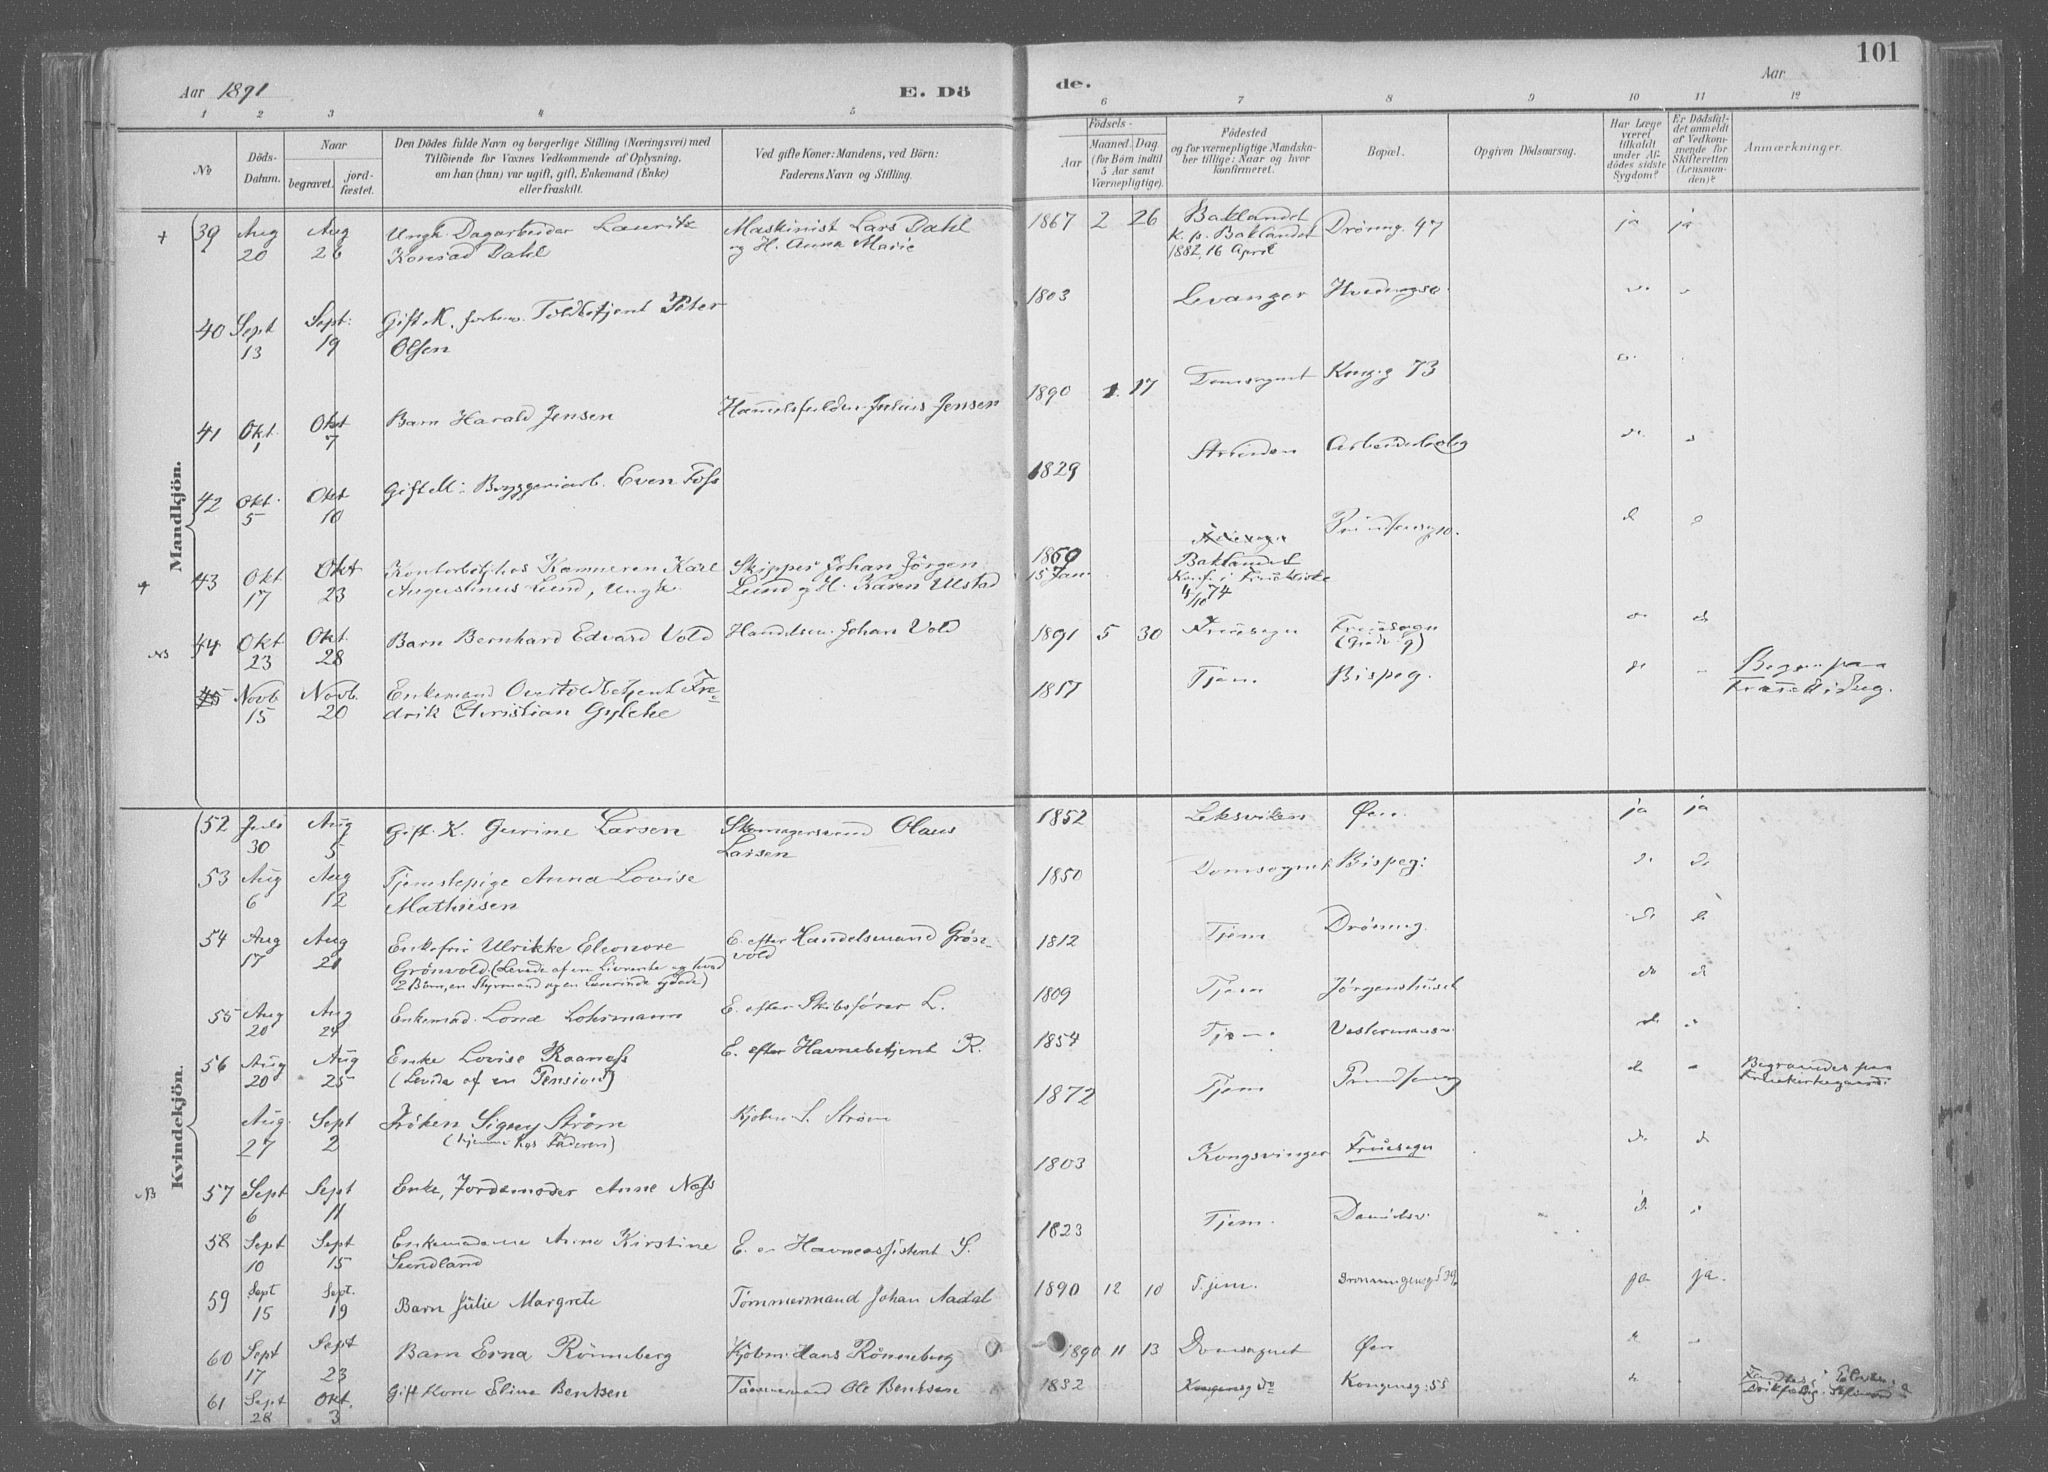 Aar 1891 E. Dö
1 2 3 4 5
No
Döds-
Datum.
Naar
begravet. jord-
fæstet.
Den Dödes fulde Navn og borgerlige Stilling (Næringsvei) med
Tilföiende for Voxnes Vedkommende af Oplysning,
om han (hun) var ugift, gift, Enkemand (Enke)
eller fraskilt.
Ved gifte Koner: Mandens, ved Börn:
Faderens Navn og Stilling.
Mandkjön.
39 Aug Aug Ungk. Dagarbeider Lauritz Maskinist Lars Dahl
20 26 Konrad Dahl og H. Anna Marie
40 Sept Sept: Gift M. forhenv. Toldbetjent Peter
13 19 Olsen
41 Okt. Okt Barn Harald Jensen Julius Jensen
1 7
42 Okt. Okt Gift M: Bryggeriarb. Even Foss
5 10
43 Okt Okt Kontorbetj. hos Kæmneren Karl Skipper Johan Jörgen
17 23 Augustinus Lund, Ungk. Lund og H. Karen Ulstad
44 Okt Okt. Barn Bernhard Edvard Vold Handelsm. Johan Vold
23 28
45 Novb Novb. Enkemand Overtoldbetjent Fre-
15 20 drik Christian
Kvindekjön.
52 Juli Aug Gift. K. Gurine Larsen Skomagersvend Olaus
30 5 Larsen
53 Aug Aug Tjenstepige Anna Lovise
6 12 Mathiesen
54 Aug Aug Enkefru Ulrikke Eleonore E. efter Handelsmand Grön-
17 21 Grönvold (Levede af en Livrente og hvad vold
2 Börn, en Styrmand og en Lærerinde ydede)
55 Aug Aug Enkemad. Lohrmann E. efter Skibsförer L.
20 24
56 Aug Aug Enke Lovise Raaness E. efter Havnebetjent R.
20 25 (Levede af en Pension)
Aug. Sept Fröken Signy Ström Kjøbm. S. Ström
27 2 (hjemme hos Faderen)
57 Sept Sept Enke, Jordemoder Anne Næss
6 11
58 Sept Sept Enkemadame Anne Kirstine E. e. Havneassistent S.
10 15 Sundland
59 Sept Sept. Barn Julie Margrete Tömmermand Johan Aadal
15 19
60 Sept Sept Barn Erna Rönneberg Kjöbm. Hans Rönneberg
17 23
61 Sept Okt. Gift Kone Eline Bentsen Tömmermand Ole Bentsen
28 3
de. Aar 101
6 7 8 9 10 11 12
Födsels-
Aar Maaned. Dag.
(for Börn indtil
5 Aar samt
Værnepligtige).
Födested
og for værnepligtige Mandska-
ber tillige: Naar og hvor
konfirmeret.
Bopæl.
Opgiven Dödsaarsag.
Har Læge
været
tilkaldt
under Af-
dödes sidste
Sygdom?
Er Dödsfal-
det anmeldt
af Vedkom-
mende for
Skifteretten
(Lensman-
den)?
Anmærkninger.
1867 2 26 Baklandet Drönng. 47 ja ja
K. p. Baklandet
1882, 16 April
1803 Levanger
1890 1 17 Domsognet Kongg 73
1829 Strinden Arbeiderbolig do
1860 Prindsensg 10.
15 Jan Baklandet
Konf. i Fruekirke
4/10 74
1891 5 30 Fruesogn Fruesogn do do
1817 Tjem. Bispeg. do
1852 Leksviken Øen. ja ja
1850 Domsognet Bispeg: do do
1812 Tjem Drönng. do do
1809 Tjem Jörgenshuset do do
1854 Tjem. do
1872 Tjem Prindsensg do Begravedes paa
Fruekirkegaard.
1803 Kongsvinger Fruesogn do do
1823 Tjem.
1890 12 10 Tjem. Dronningensg 39 ja ja.
1890 11 13 Domsognet Øen
1832 Kongensg: 55